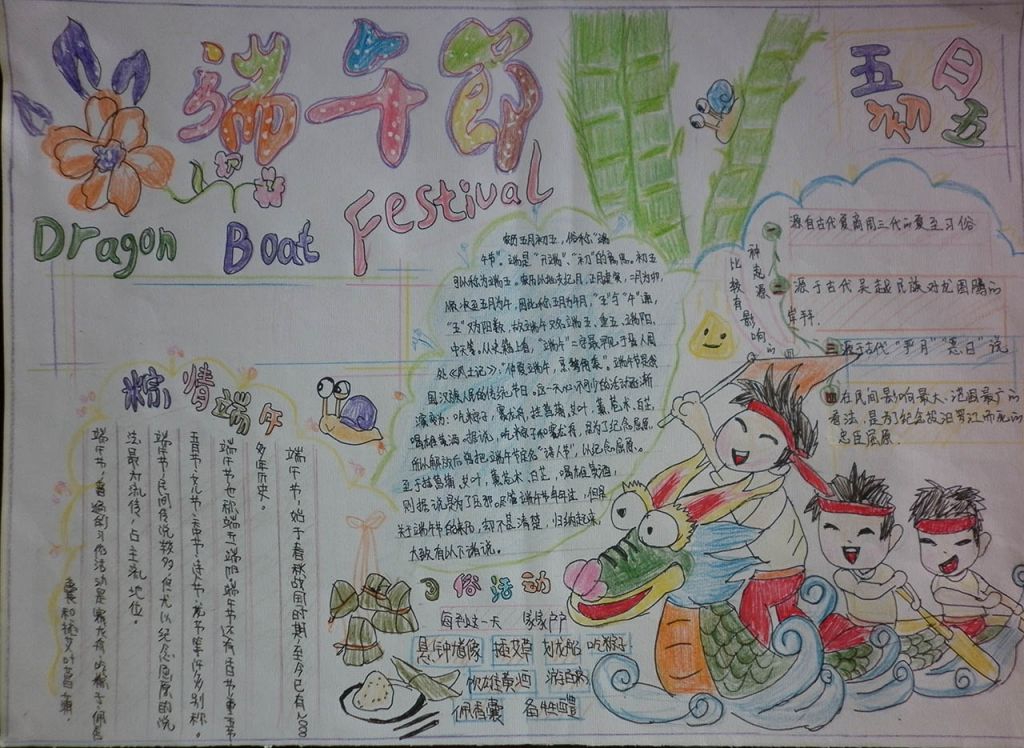 端午節
Dragon Boat Festival
五日
初五
农历五月初五，俗称"端
午节"。端是"开端"、"初"的意思。初五
可以称为端五。农历以地支纪月，正月建寅，二月为卯，
顺次至五月为午，因此称五月为午月，"五"与"午"通，
"五"又为阳数，故端午又名端五、重五、端阳、
中天等。从史籍上看，"端午"二字最早见于晋人周
处《风土记》：
国汉族人民的传统节日。这一天必不可少的活动逐渐
演变为：吃粽子，赛龙舟，挂菖蒲、艾叶，薰苍术、白芷，
喝雄黄酒。据说，吃粽子和赛龙舟，是为了纪念屈原，
所以解放后曾把端午节定名"诗人节"，以纪念屈原。
至于挂菖蒲、艾叶，薰苍术、白芷，喝雄黄酒，
则据说是为了压邪。
关于端午节的来历，却不甚清楚，归纳起来，
大致有以下诸说。
比较有影响的四
种起源
一 源自古代夏商周三代的夏至习俗
二 源于古代吴越民族对龙图腾的
崇拜.
三 源于古代"恶月""恶日"说
四 在民间影响最大、范围最广的
看法，是为纪念投汨罗江而死的
忠臣屈原.
粽情端午
端午节，始于春秋战国时期，至今已有2000
多年历史。
端午节也称端五，端阳。端午节还有
五月节、
端午节民间传说较多，但尤以纪念屈原的说
法最为流传，占主流地位。
端午节
习俗活动
每到这一天 家家户户
悬钟馗像 插艾草 划龙船 吃粽子
饮雄黄酒 游百病
佩香囊 备牲醴